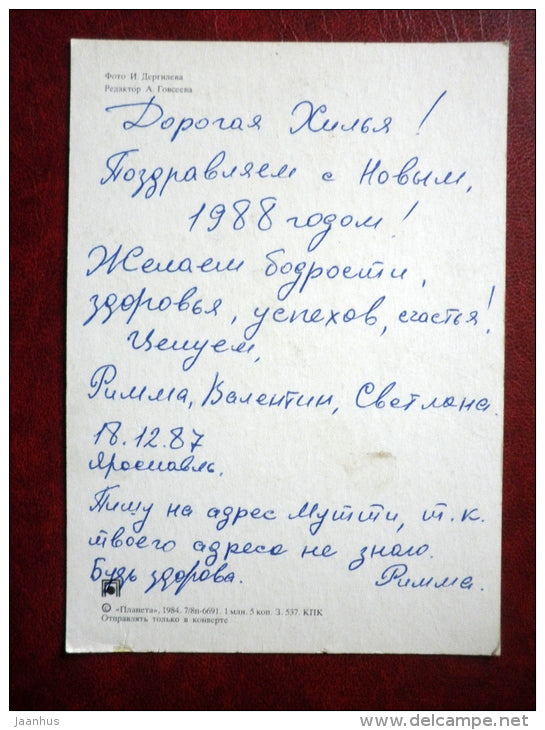 Фото И. Дергилева
Редактор А. Говсеева
Дорогая Хилья!
Поздравляем с Новым,
1988 годом!
Желаем бодрости,
здоровья, успехов, счастья!
Целуем,
Римма, Валентин, Светлана.
18.12.87
Ярославль.
Пишу на адрес Мутти, т.к.
твоего адреса не знаю.
Будь здорова. Римма.
© «Планета», 1984. 7/8п-6691. 1 млн. 5 коп. З. 537. КПК
Отправлять только в конверте
jaanhus
www.delcampe.net